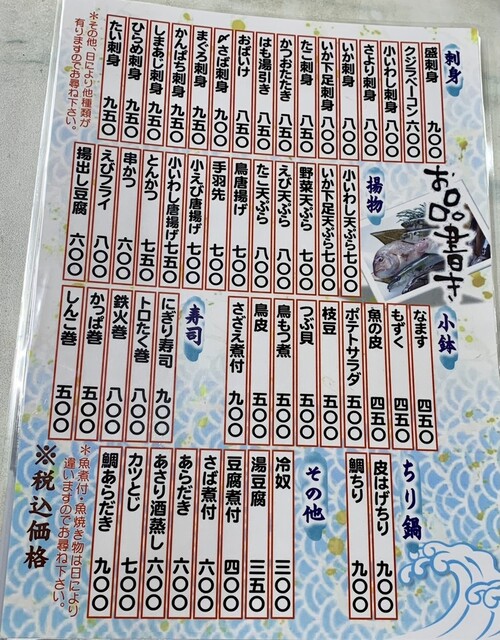 お品書き
刺身
盛刺身 九〇〇
クジラベーコン 六〇〇
小いわし刺身 八〇〇
さより刺身 八〇〇
いか刺身 八〇〇
いか下足刺身 八〇〇
たこ刺身 八五〇
かつおたたき 八五〇
はも湯引き 八五〇
おばいけ 八五〇
〆さば刺身 九〇〇
まぐろ刺身 九五〇
かんぱち刺身 九五〇
しまあじ刺身 九五〇
ひらめ刺身 九五〇
たい刺身 九五〇
＊その他、日により他種類が
有りますのでお尋ね下さい。
揚物
小いわし天ぷら 七〇〇
いか下足天ぷら 七〇〇
野菜天ぷら 七〇〇
えび天ぷら 八〇〇
たこ天ぷら 八〇〇
鳥唐揚げ 七〇〇
手羽先 七〇〇
小えび唐揚げ 七〇〇
小いわし唐揚げ 七五〇
とんかつ 七五〇
串かつ 六〇〇
えびフライ 八〇〇
揚出し豆腐 六〇〇
小鉢
なます 四五〇
もずく 四五〇
魚の皮 四五〇
ポテトサラダ 五〇〇
枝豆 五〇〇
つぶ貝 五〇〇
鳥もつ煮 五〇〇
鳥皮 五〇〇
さざえ煮付 九〇〇
寿司
にぎり寿司 九〇〇
トロたく巻 八〇〇
鉄火巻 八〇〇
かっぱ巻 五〇〇
しんこ巻 五〇〇
ちり鍋
皮はげちり 九〇〇
鯛ちり 九〇〇
その他
冷奴 三〇〇
湯豆腐 三五〇
豆腐煮付 四〇〇
さば煮付 六〇〇
あらだき 六〇〇
あさり酒蒸し 六〇〇
カツとじ 七〇〇
鯛あらだき 九〇〇
＊魚煮付・魚焼き物は日により
違いますのでお尋ね下さい。
※税込価格